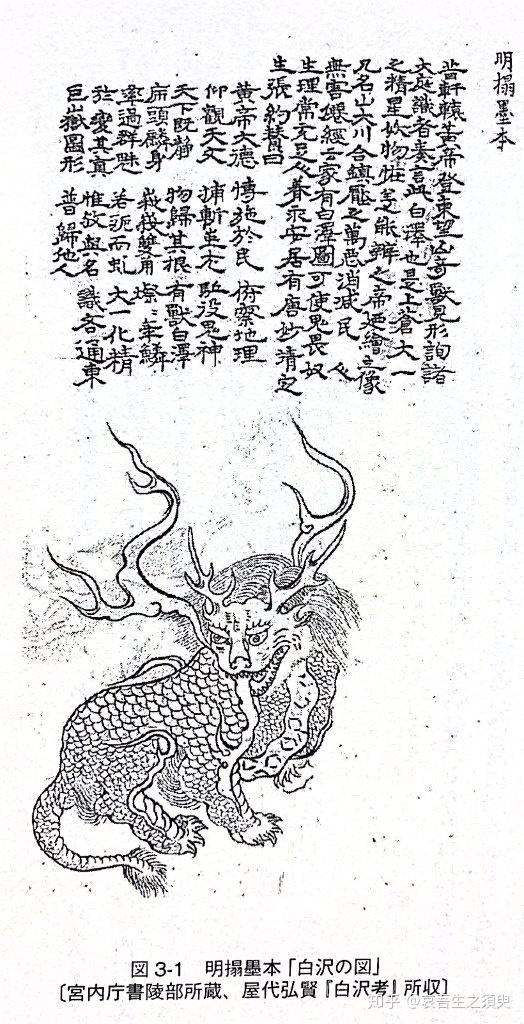 明搨墨本
昔軒轅黃帝登東望山奇獸見形詢諸
大庭識者奏言此白澤也是上蒼大一
之精星妖物怪能辨之帝廼繪之像
凡名山大川合鎮厭之萬悪消減民人
無害僊經云家有白澤圖可使鬼畏奴
生理常充足人眷永安居有唐妙清定
生張約賛曰
黃帝大德 博施於民 俯察地理
仰觀天文 捕斬蚩尤 駈役鬼神
天下既静 物歸其根 有獸白澤
頭麟身 峩峩雙角 燦〻華鱗
過群 若而虬 大一化精
變其真 惟故與名 識各通東
巨嶽圖形 普歸他人
図 3-1 明搨墨本「白沢の図」
〔宮内庁書陵部所蔵、屋代弘賢『白沢考』所収〕
知乎 @哀吾生之须臾